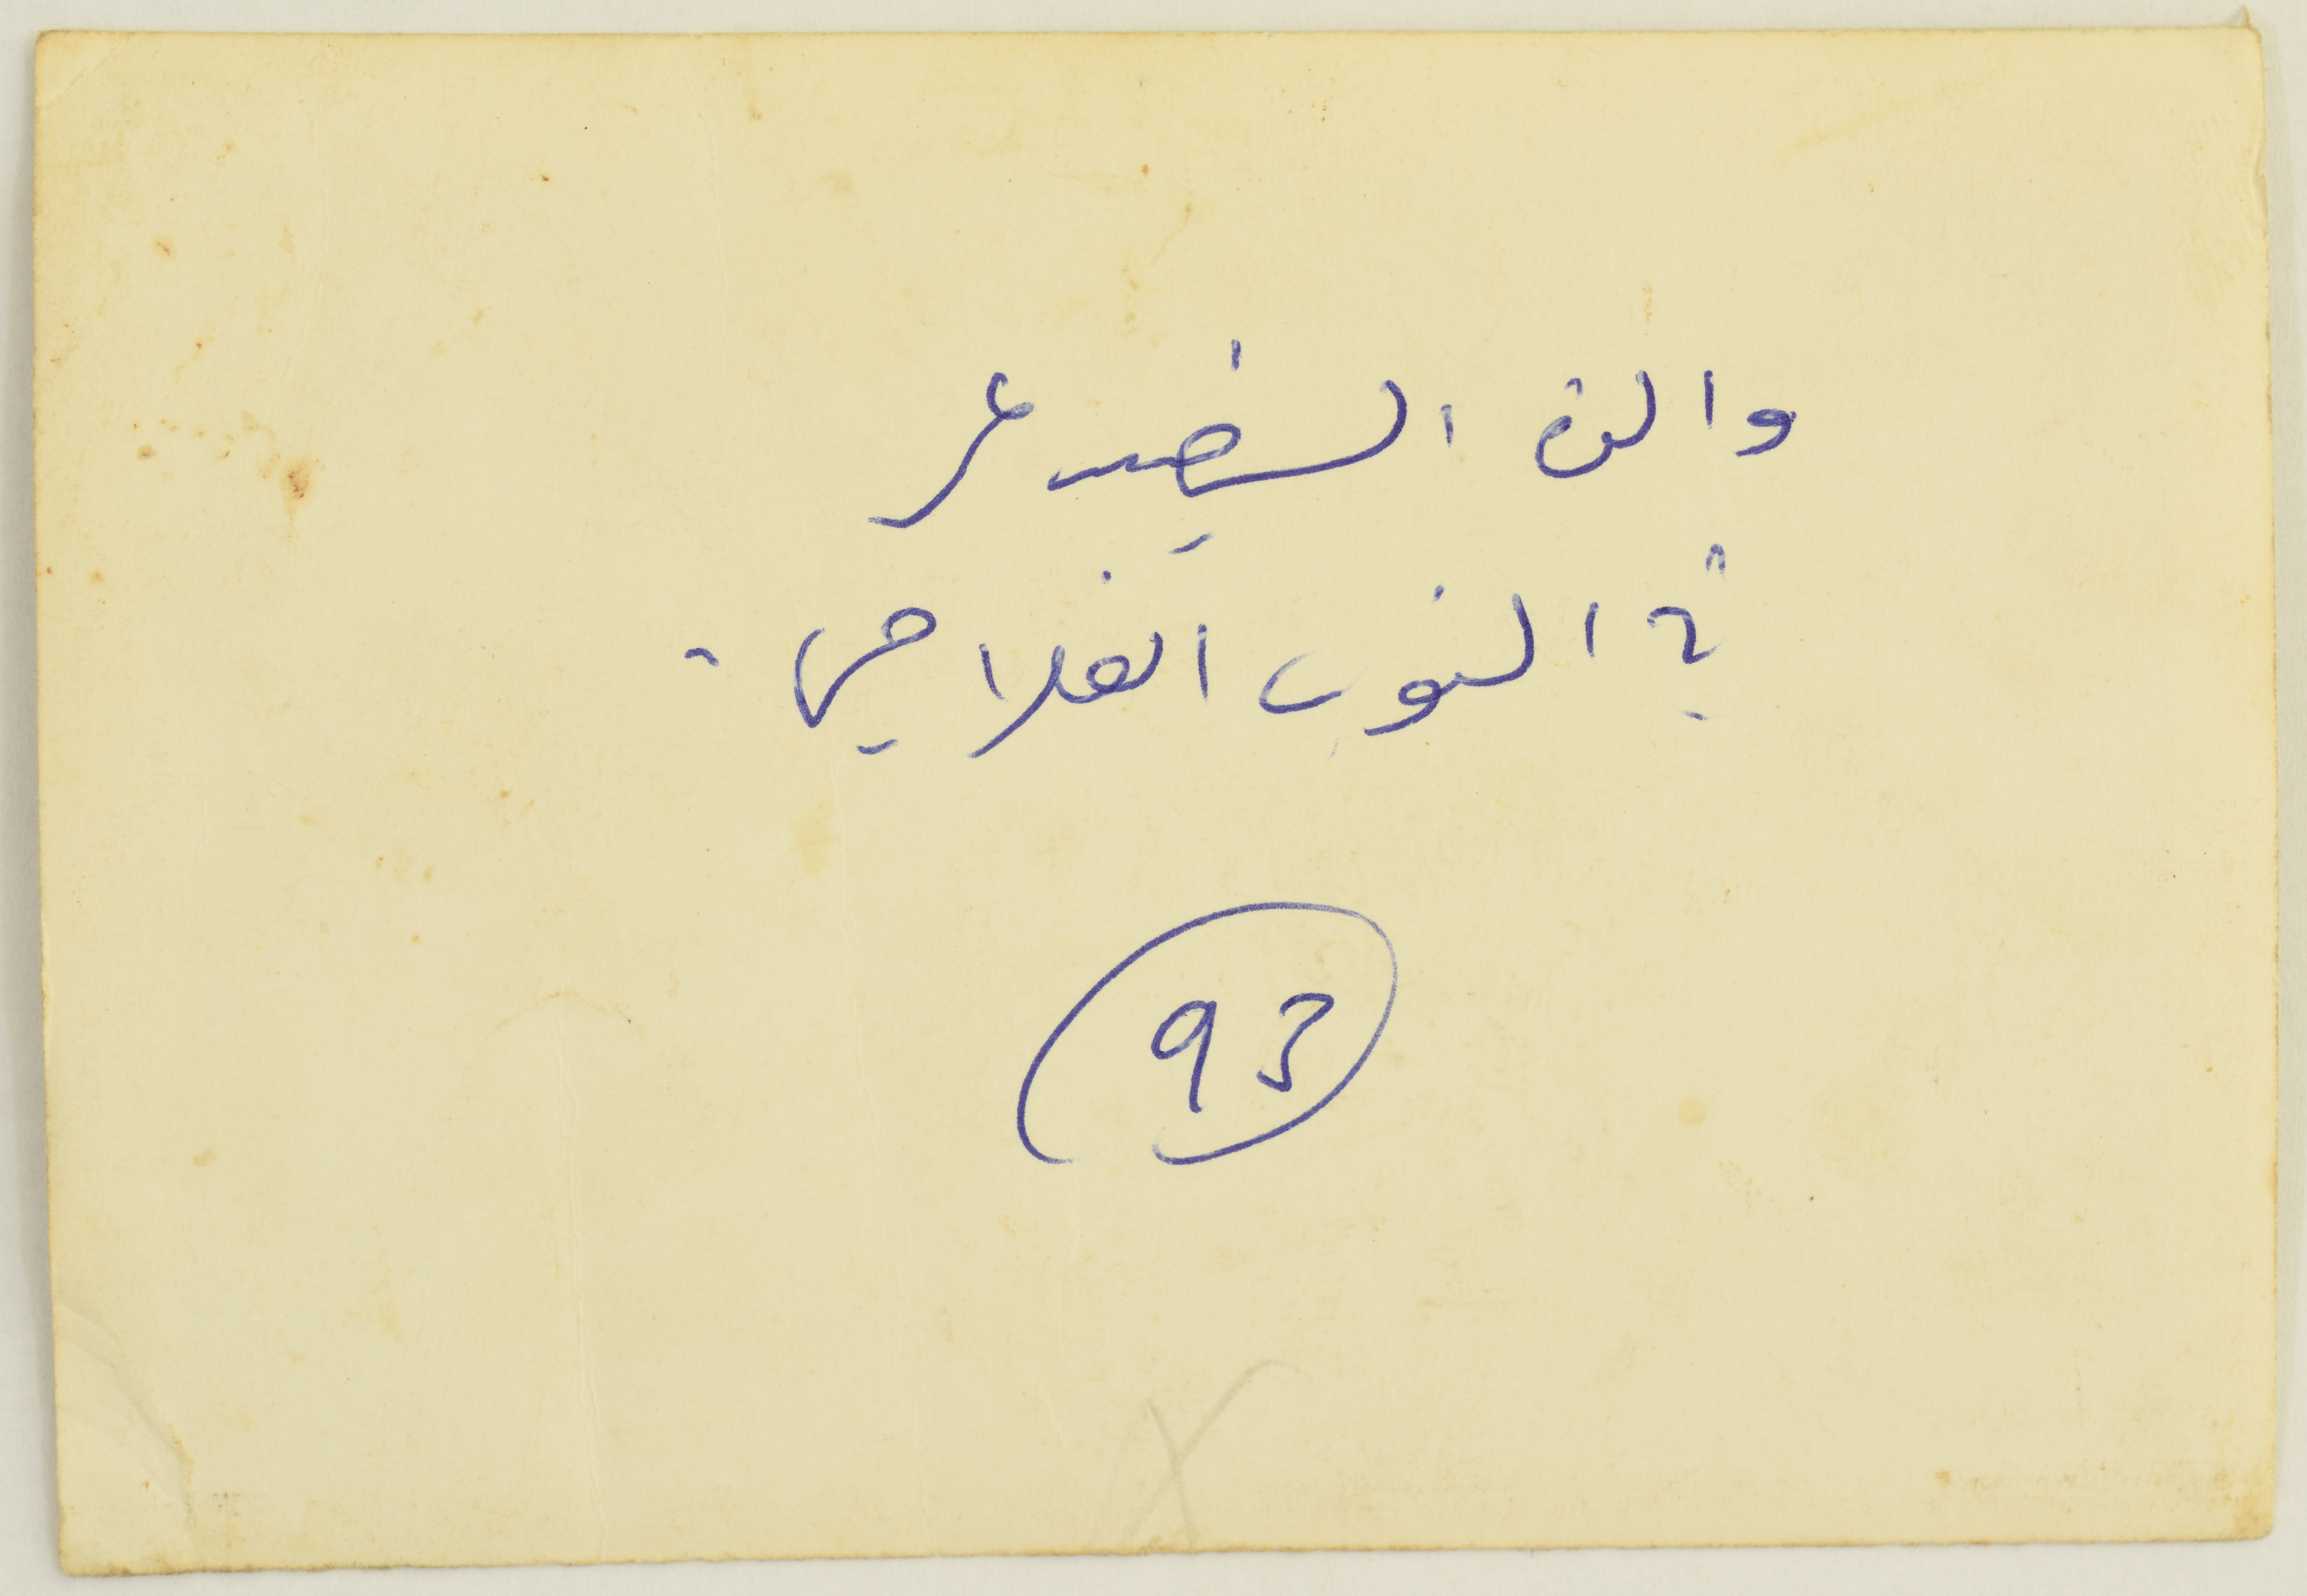 والدة الشهيد عمر
في الثوب الفلاحي .
93